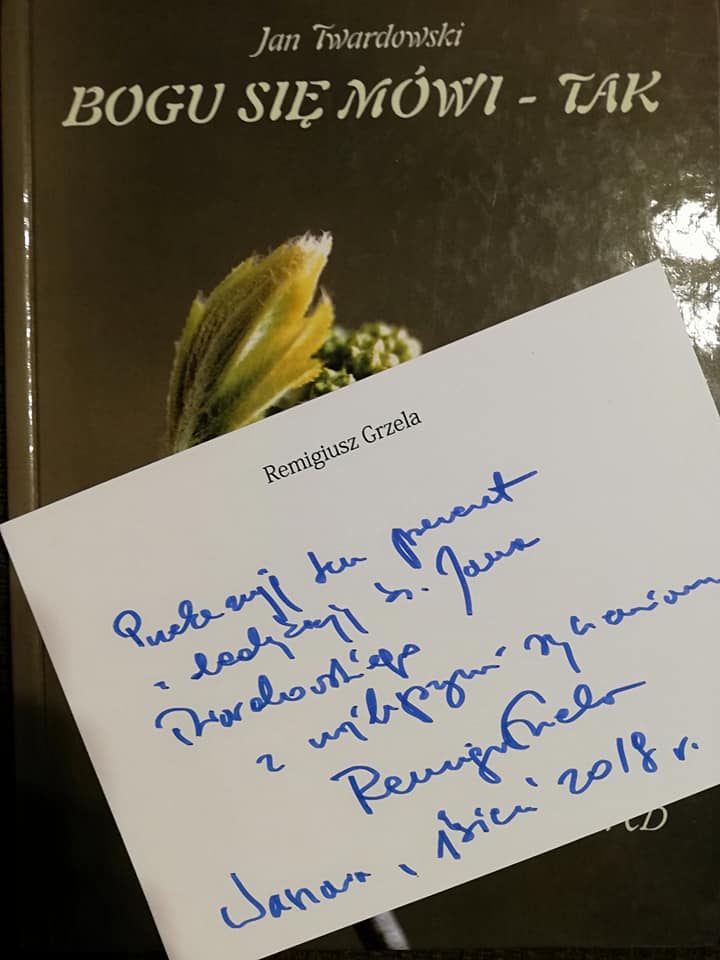 Jan Twardowski
BOGU SIĘ MÓWI - TAK
Remigiusz Grzela
Przekazuję ten prezent
i dedykację ks. Jana
Twardowskiego
z najlepszymi życzeniami
Remigiusz Grzela
Warszawa, 2018 r.
CD